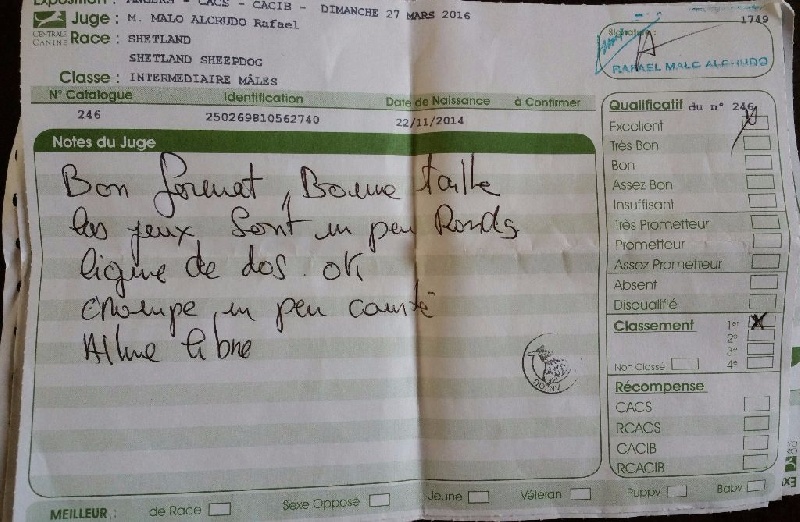 Exposition : ANGERS - CACS - CACIB - DIMANCHE 27 MARS 2016
CENTRALE CANINE
Juge : M. MALO ALCRUDO Rafael
Race : SHETLAND
SHETLAND SHEEPDOG
Classe : INTERMEDIAIRE MÂLES
1749
Signature :
RAFAEL MALO ALCRUDO
N° Catalogue Identification Date de Naissance à Confirmer
246 250269810562740 22/11/2014
Notes du Juge
Bon format, Bonne taille
les yeux sont un peu Ronds
ligne de dos. OK
croupe un peu
Allure libre
Qualificatif du n° 246
Excellent
Très Bon
Bon
Assez Bon
Insuffisant
Très Prometteur
Prometteur
Assez Prometteur
Absent
Disqualifié
Classement 1er X
2e
3e
Non Classé 4e
Récompense
CACS
RCACS
CACIB
RCACIB
MEILLEUR : de Race Sexe Opposé Jeune Vétéran Puppy Baby